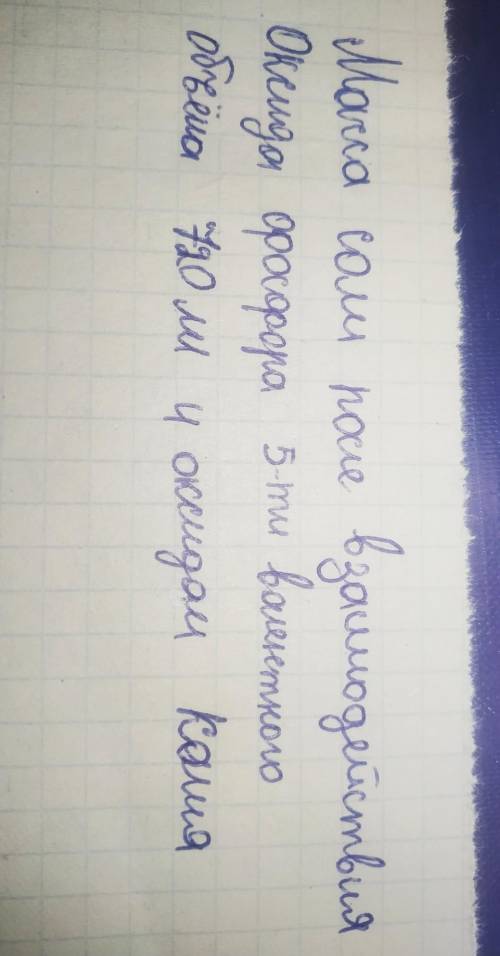 Масса соли после взаимодействия
Оксида фосфора 5-ти валентного
объёма 720 мл и оксидом калия